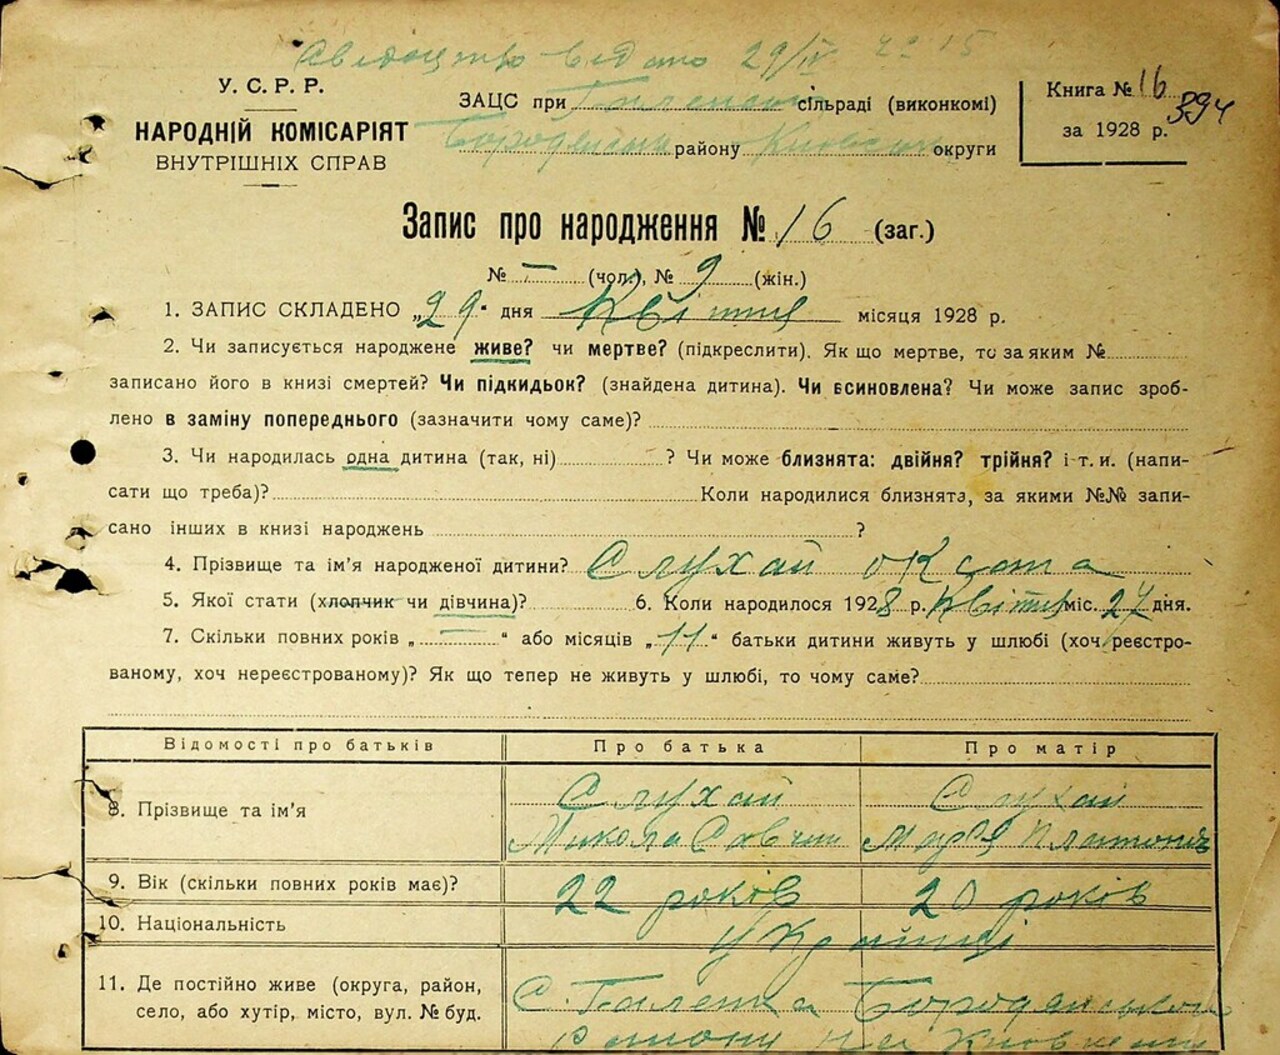 Свідоцтво видано 29/IV № 15
У. С. Р. Р.
НАРОДНІЙ КОМІСАРІЯТ
ВНУТРІШНІХ СПРАВ
ЗАЦС при сільраді (виконкомі)
Бородянськ району Київськ округи
Книга № 16
394
за 1928 р.
Запис про народження № 16 (заг.)
№ — (чол.), № 9 (жін.)
1. ЗАПИС СКЛАДЕНО „29" дня Квітня місяця 1928 р.
2. Чи записується народжене живе? чи мертве? (підкреслити). Як що мертве, то за яким №
записано його в книзі смертей? Чи підкидьок? (знайдена дитина). Чи всиновлена? Чи може запис зроб-
лено в заміну попереднього (зазначити чому саме)?
3. Чи народилась одна дитина (так, ні) ? Чи може близнята: двійня? трійня? і т. и. (напи-
сати що треба)? Коли народилися близнята, за якими №№ запи-
сано інших в книзі народжень ?
4. Прізвище та ім'я народженої дитини? Слухай Оксана
5. Якої стати (хлопчик чи дівчина)? 6. Коли народилося 1928 р. Квітня міс. 27 дня.
7. Скільки повних років „—" або місяців „11" батьки дитини живуть у шлюбі (хоч реєстро-
ваному, хоч нереєстрованому)? Як що тепер не живуть у шлюбі, то чому саме?
Відомості про батьків Про батька Про матір
8. Прізвище та ім'я Слухай Микола Савчин Слухай Марія Платонів
9. Вік (скільки повних років має)? 22 років 20 років
10. Національність Українці
11. Де постійно живе (округа, район,
село, або хутір, місто, вул. № буд.
С. Бородянського
району на